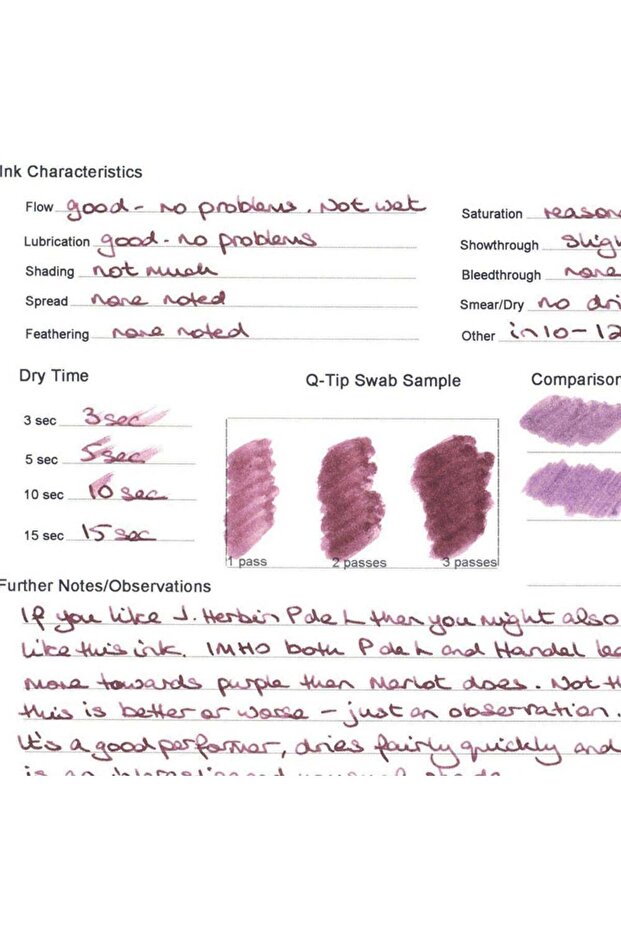 Ink Characteristics
Flow good - no problems. Not wet
Lubrication good - no problems
Shading not much
Spread none noted
Feathering none noted
Saturation reason
Showthrough sligh
Bleedthrough none
Smear/Dry no dri
Other in 10-12
Dry Time
3 sec 3 sec
5 sec 5 sec
10 sec 10 sec
15 sec 15 sec
Q-Tip Swab Sample
1 pass 2 passes 3 passes
Comparison
Further Notes/Observations
If you like J. Herbin P de L then you might also
like this ink. IMHO both P de L and Handel lea
more towards purple than Merlot does. Not th
this is better or worse - just an observation.
It's a good performer, dries fairly quickly and
is an interesting and unusual shade